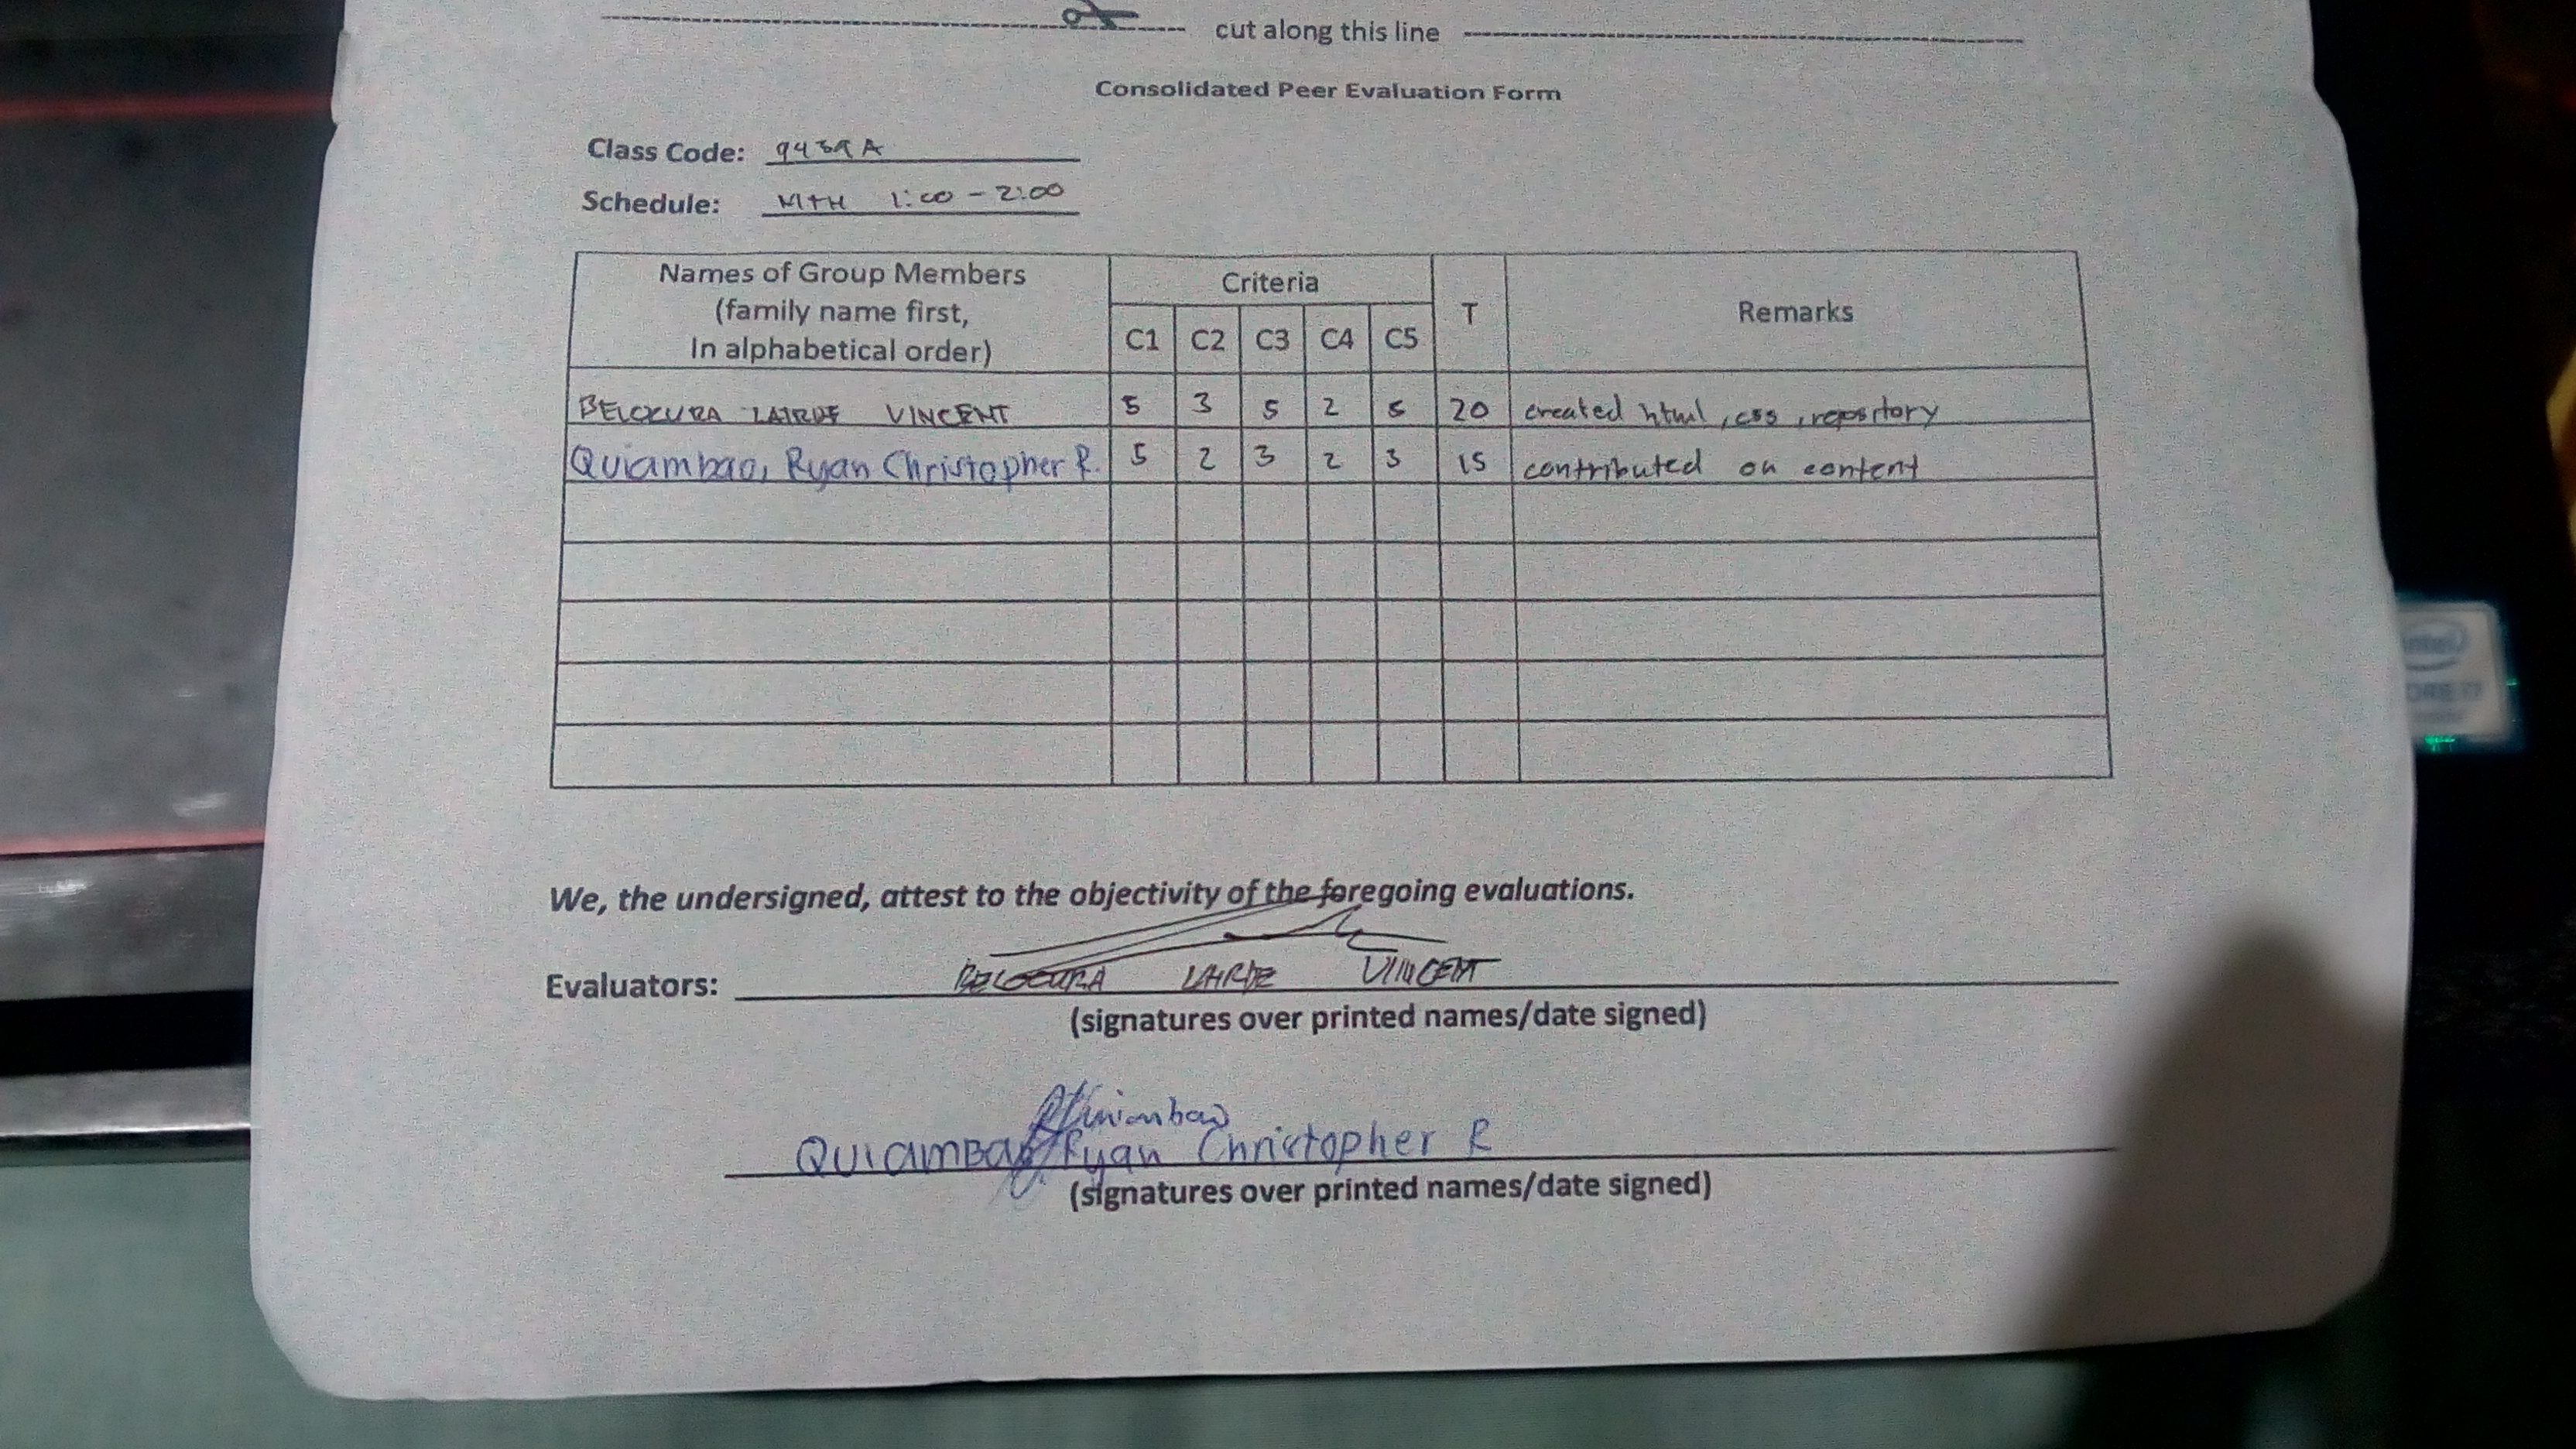 cut along this line
Consolidated Peer Evaluation Form
Class Code: 9439A
Schedule: MTH 1:00 - 2:00
Names of Group Members
(family name first,
In alphabetical order)
Criteria
T
Remarks
C1 C2 C3 C4 C5
BELOCURA LAIRDE VINCENT 5 3 5 2 5 20 created html, css, repository
Quiambao, Ryan Christopher R. 5 2 3 2 3 15 contributed on content
We, the undersigned, attest to the objectivity of the foregoing evaluations.
Evaluators: BELOCURA VINCENT
(signatures over printed names/date signed)
Quiambao
QUIAMBAO, Ryan Christopher R
(signatures over printed names/date signed)
intel
CORE i7